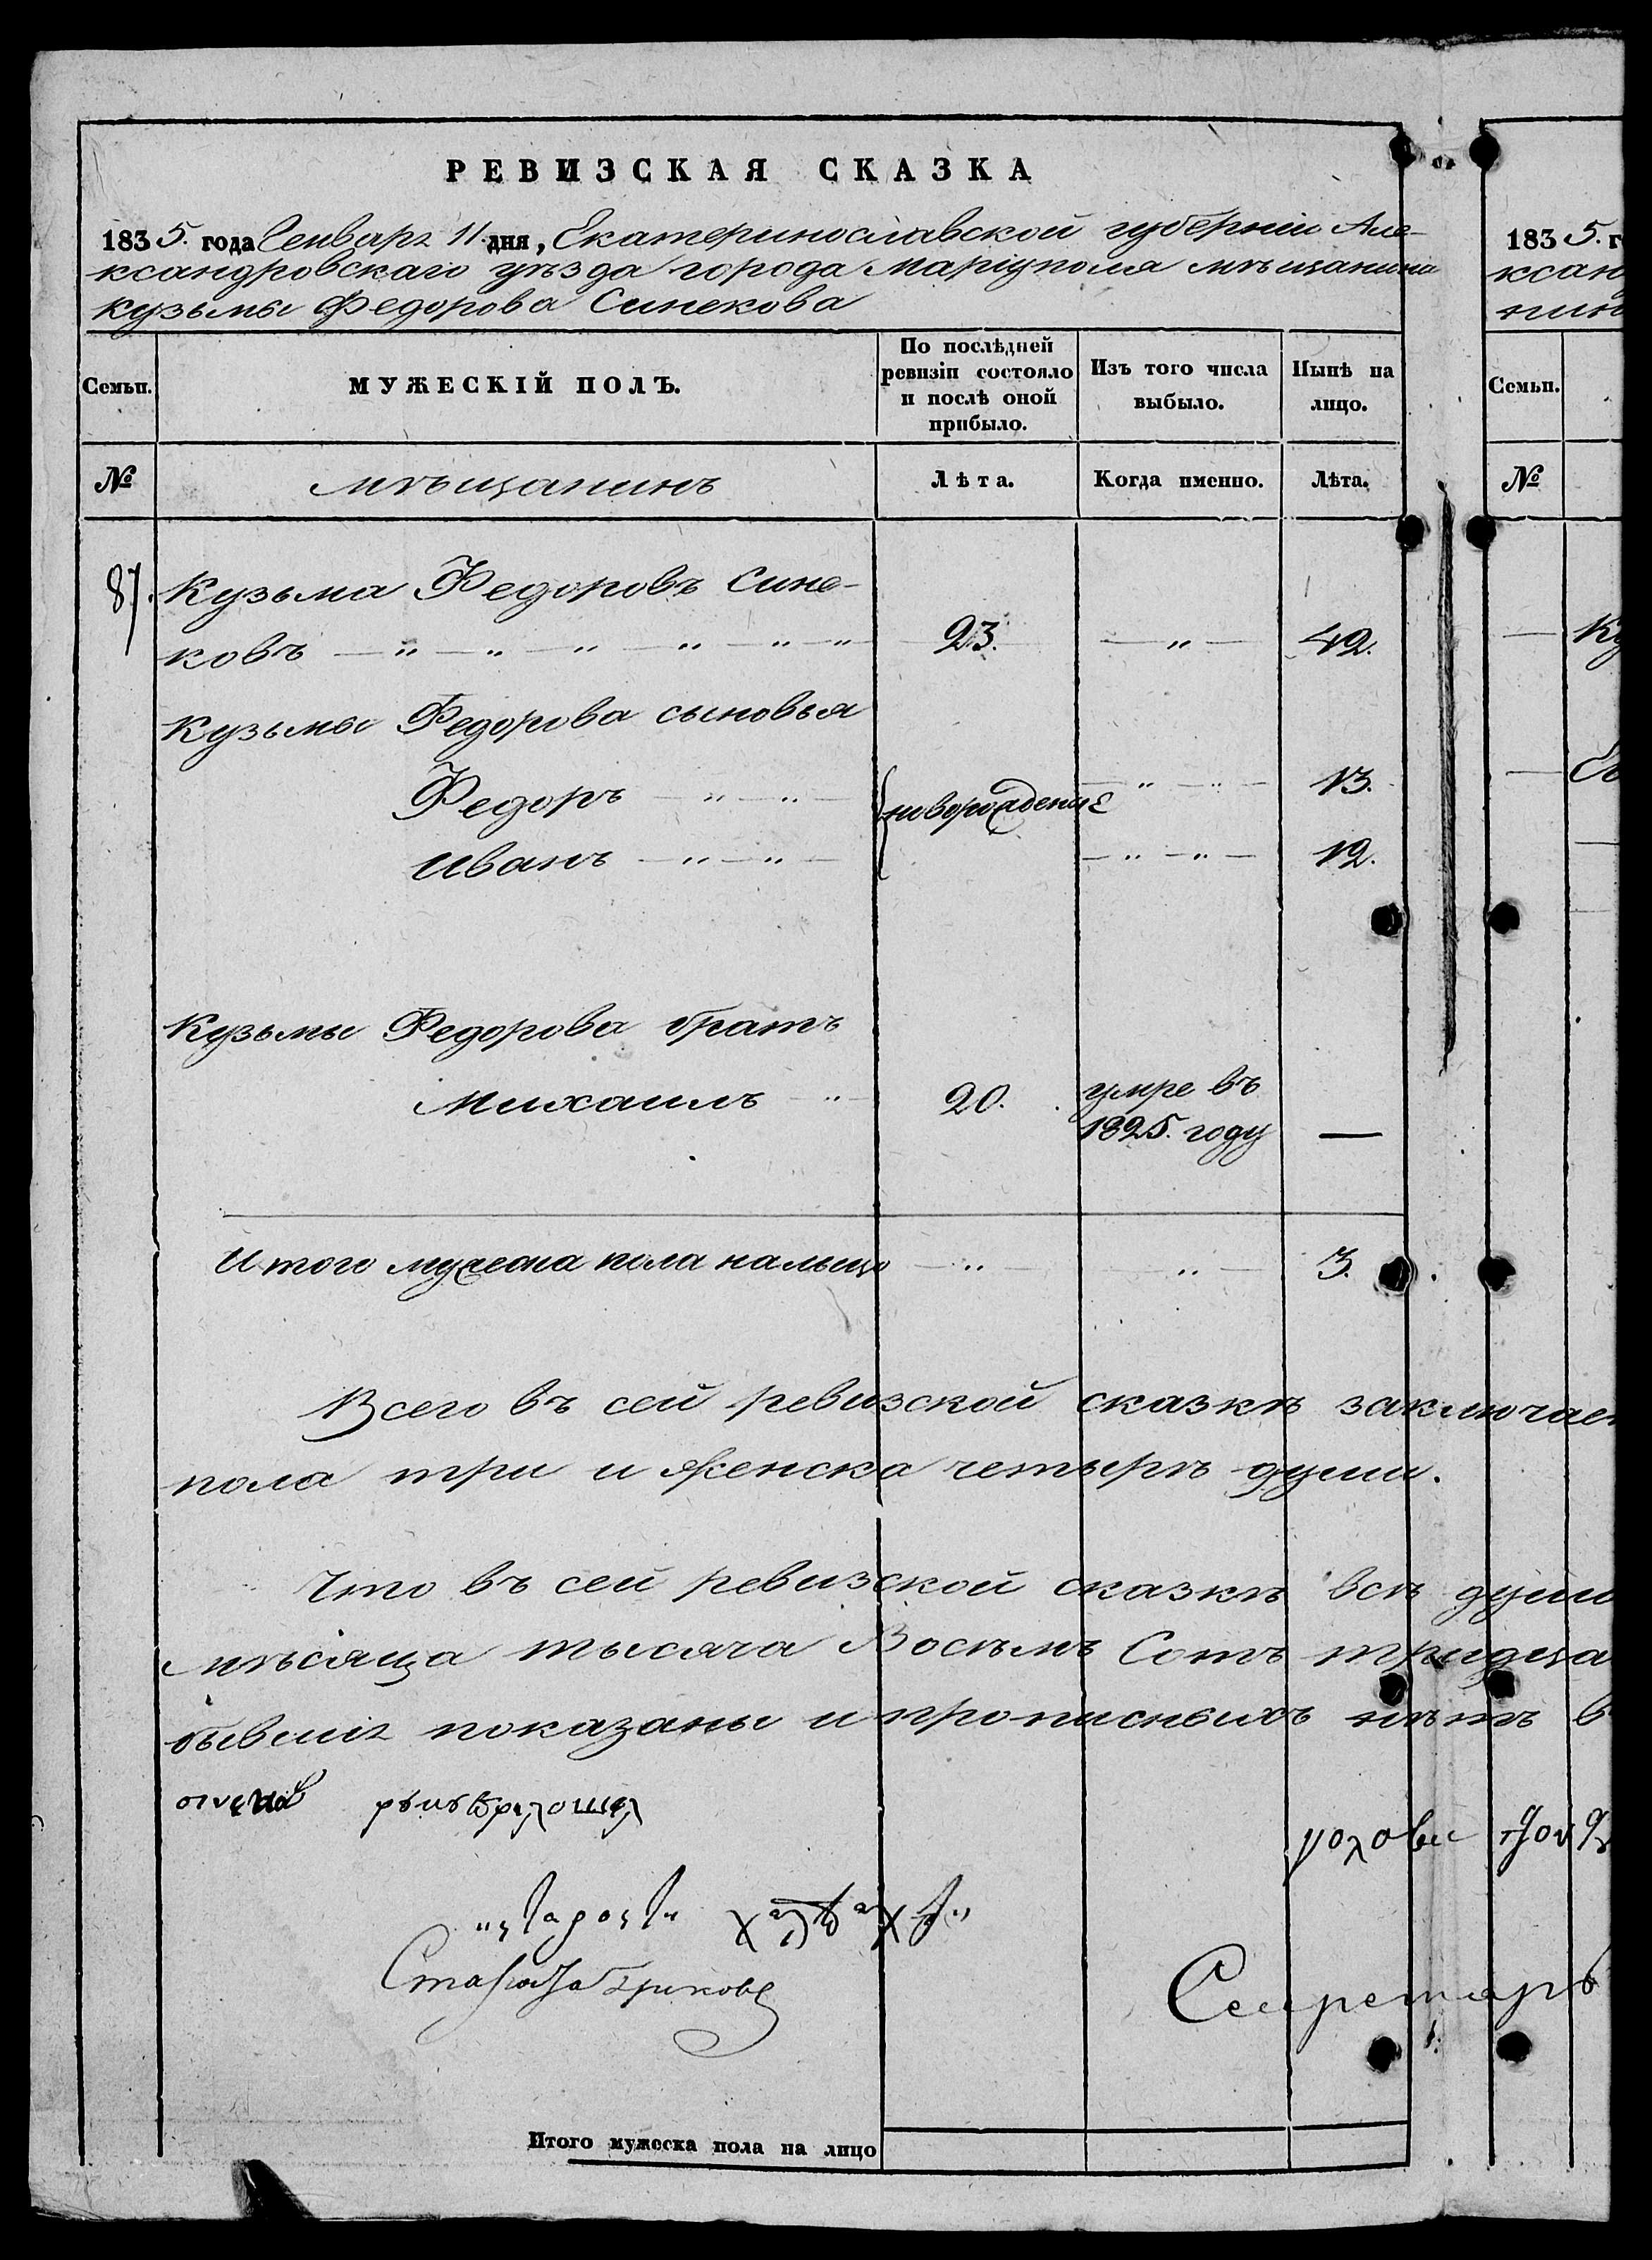 РЕВИЗСКАЯ СКАЗКА
1835. года Генваря 11 дня, Екатеринославской губерніи Але-
ксандровскаго уѣзда города Маріуполя мѣщанина
Кузьмы Федорова Синекова
Семьи.
МУЖЕСКІЙ ПОЛЪ.
По послѣдней ревизіи состояло и послѣ оной прибыло.
Изъ того числа выбыло.
Нынѣ на лицо.
№
мѣщанинъ
Лѣта.
Когда именно.
Лѣта.
87. Кузьма Федоровъ Сине-
ковъ 23. 42.
Кузьмы Федорова сыновья
Федоръ новорожденные 13.
Иванъ 12.
Кузьмы Федорова братъ
Михаилъ 20. умре въ
1825. году —
Итого мужеска пола налицо 3.
Всего въ сей ревизской сказкѣ заключает
пола три и женска четырѣ души.
Что въ сей ревизской сказкѣ всѣ души
мѣсяца тысяча Восемъ Сотъ тридца
показаны и прописныхъ нѣтъ в
Секретарь
Итого мужеска пола на лицо
1835. г
ксан
нин
Семьи.
№
Ку